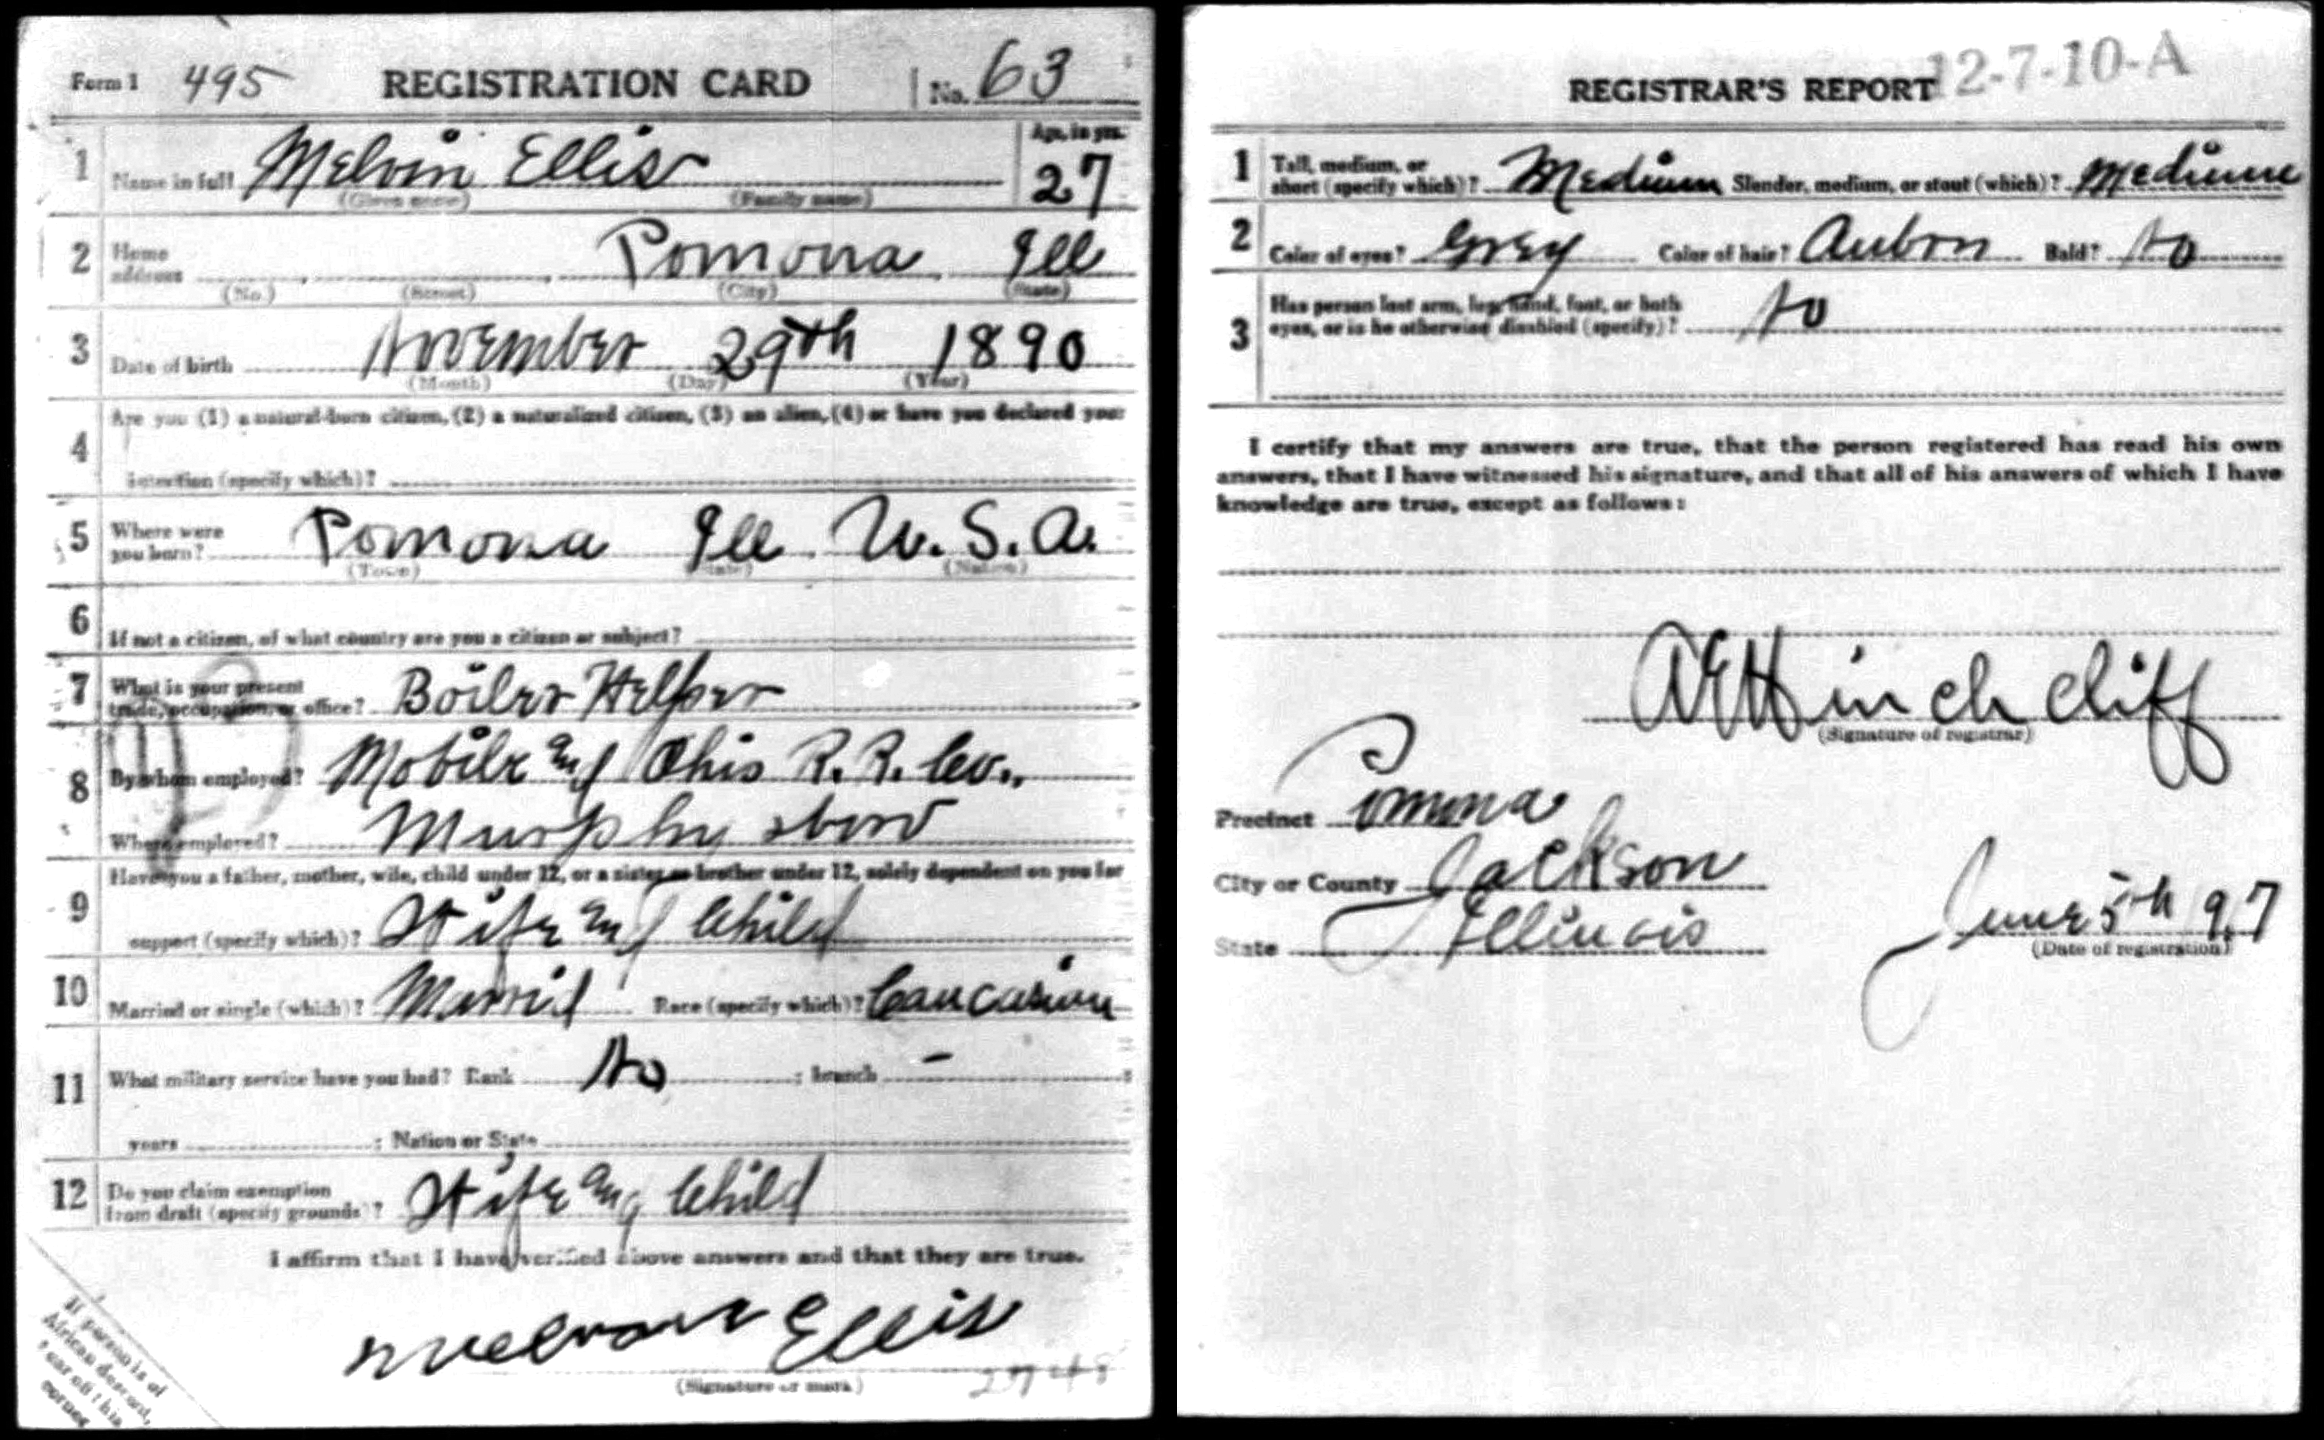 Form 1 495 REGISTRATION CARD No. 63
1 Name in full Melvin Ellis Age, in yrs. 27
(Given name) (Family name)
2 Home address Pomona Ill
(No.) (Street) (City) (State)
3 Date of birth November 29th 1890
(Month) (Day) (Year)
4 Are you (1) a natural-born citizen, (2) a naturalized citizen, (3) an alien, (4) or have you declared your
intention (specify which)?
5 Where were you born? Pomona Ill U.S.A.
(Town) (State) (Nation)
6 If not a citizen, of what country are you a citizen or subject?
7 What is your present trade, occupation, or office? Boiler Helper
8 By whom employed? Mobile and Ohio R.R. Co.,
Where employed? Murphysboro
9 Have you a father, mother, wife, child under 12, or a sister or brother under 12, solely dependent on you for
support (specify which)? Wife and Child
10 Married or single (which)? Married Race (specify which)? Caucasian
11 What military service have you had? Rank No ; branch -
years ; Nation or State
12 Do you claim exemption from draft (specify grounds)? Wife and Child
I affirm that I have verified above answers and that they are true.
Ellis
(Signature or mark) 2748
If person is of
African descent,
tear off this
corner
REGISTRAR'S REPORT 12-7-10-A
1 Tall, medium, or short (specify which)? Medium Slender, medium, or stout (which)? Medium
2 Color of eyes? Grey Color of hair? Aubrn Bald? No
3 Has person lost arm, leg, hand, foot, or both eyes, or is he otherwise disabled (specify)? No
I certify that my answers are true, that the person registered has read his own
answers, that I have witnessed his signature, and that all of his answers of which I have
knowledge are true, except as follows:
A E Hinchcliff
(Signature of registrar)
Precinct Pomona
City or County Jackson
State Illinois June 5th 917
(Date of registration)